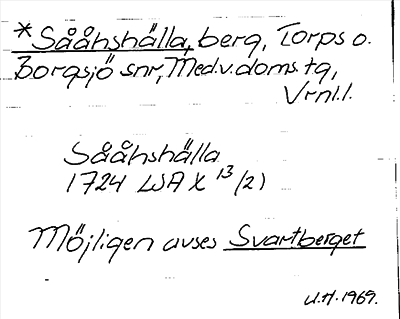 *Sååhshälla, berg, Torps o.
Borgsjö snr, Med.v.doms.tg,
Vrnl.l.
Sååhshälla
1724 LSA X 13/2)
Möjligen avses Svartberget
U.H. 1969.